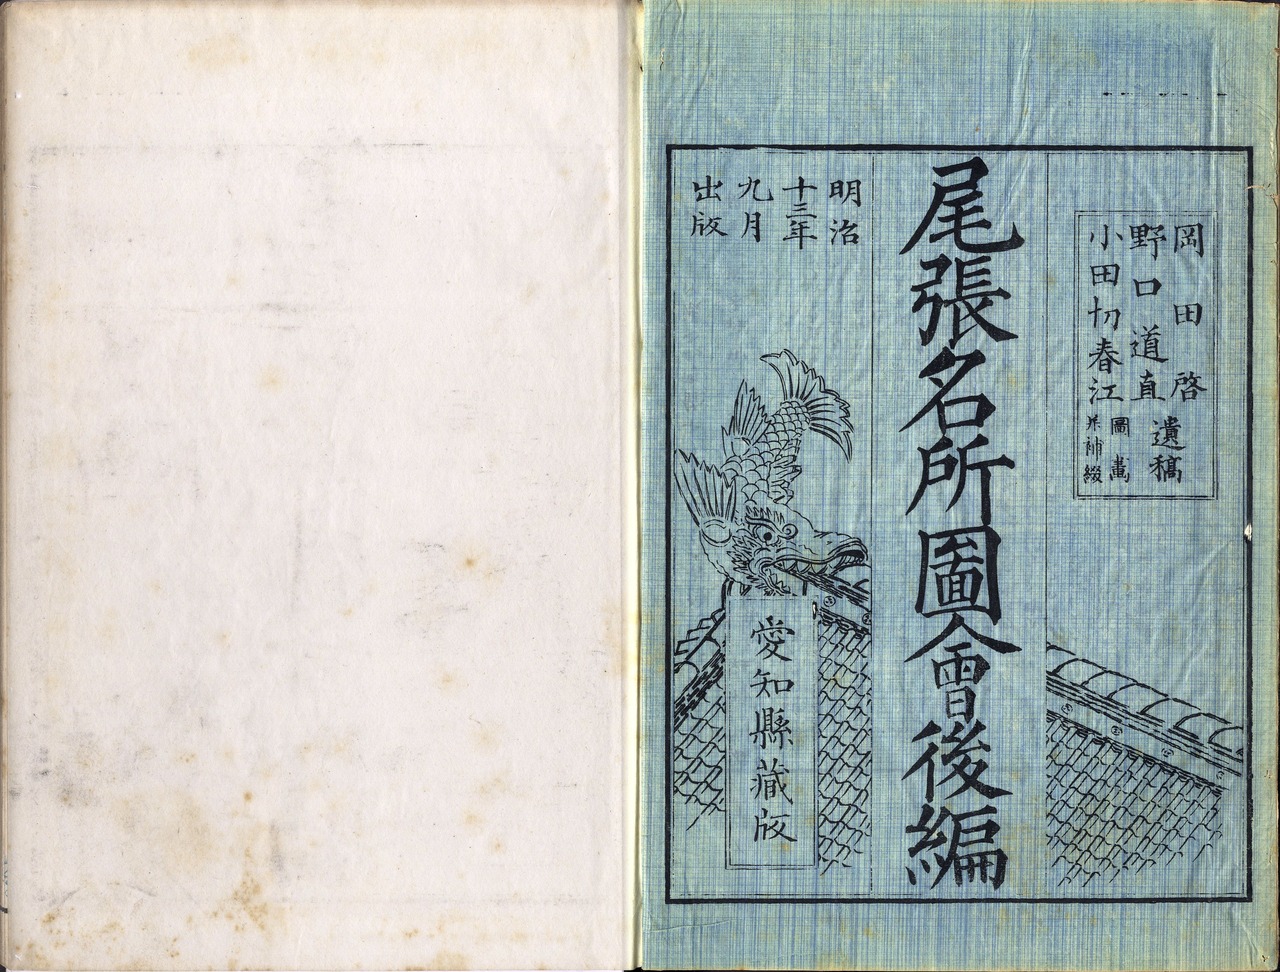 岡田啓
野口道直
遺稿
小田切春江
圖畵
并補綴
尾張名所圖會後編
明治
十三年
九月
出版
愛知縣藏版